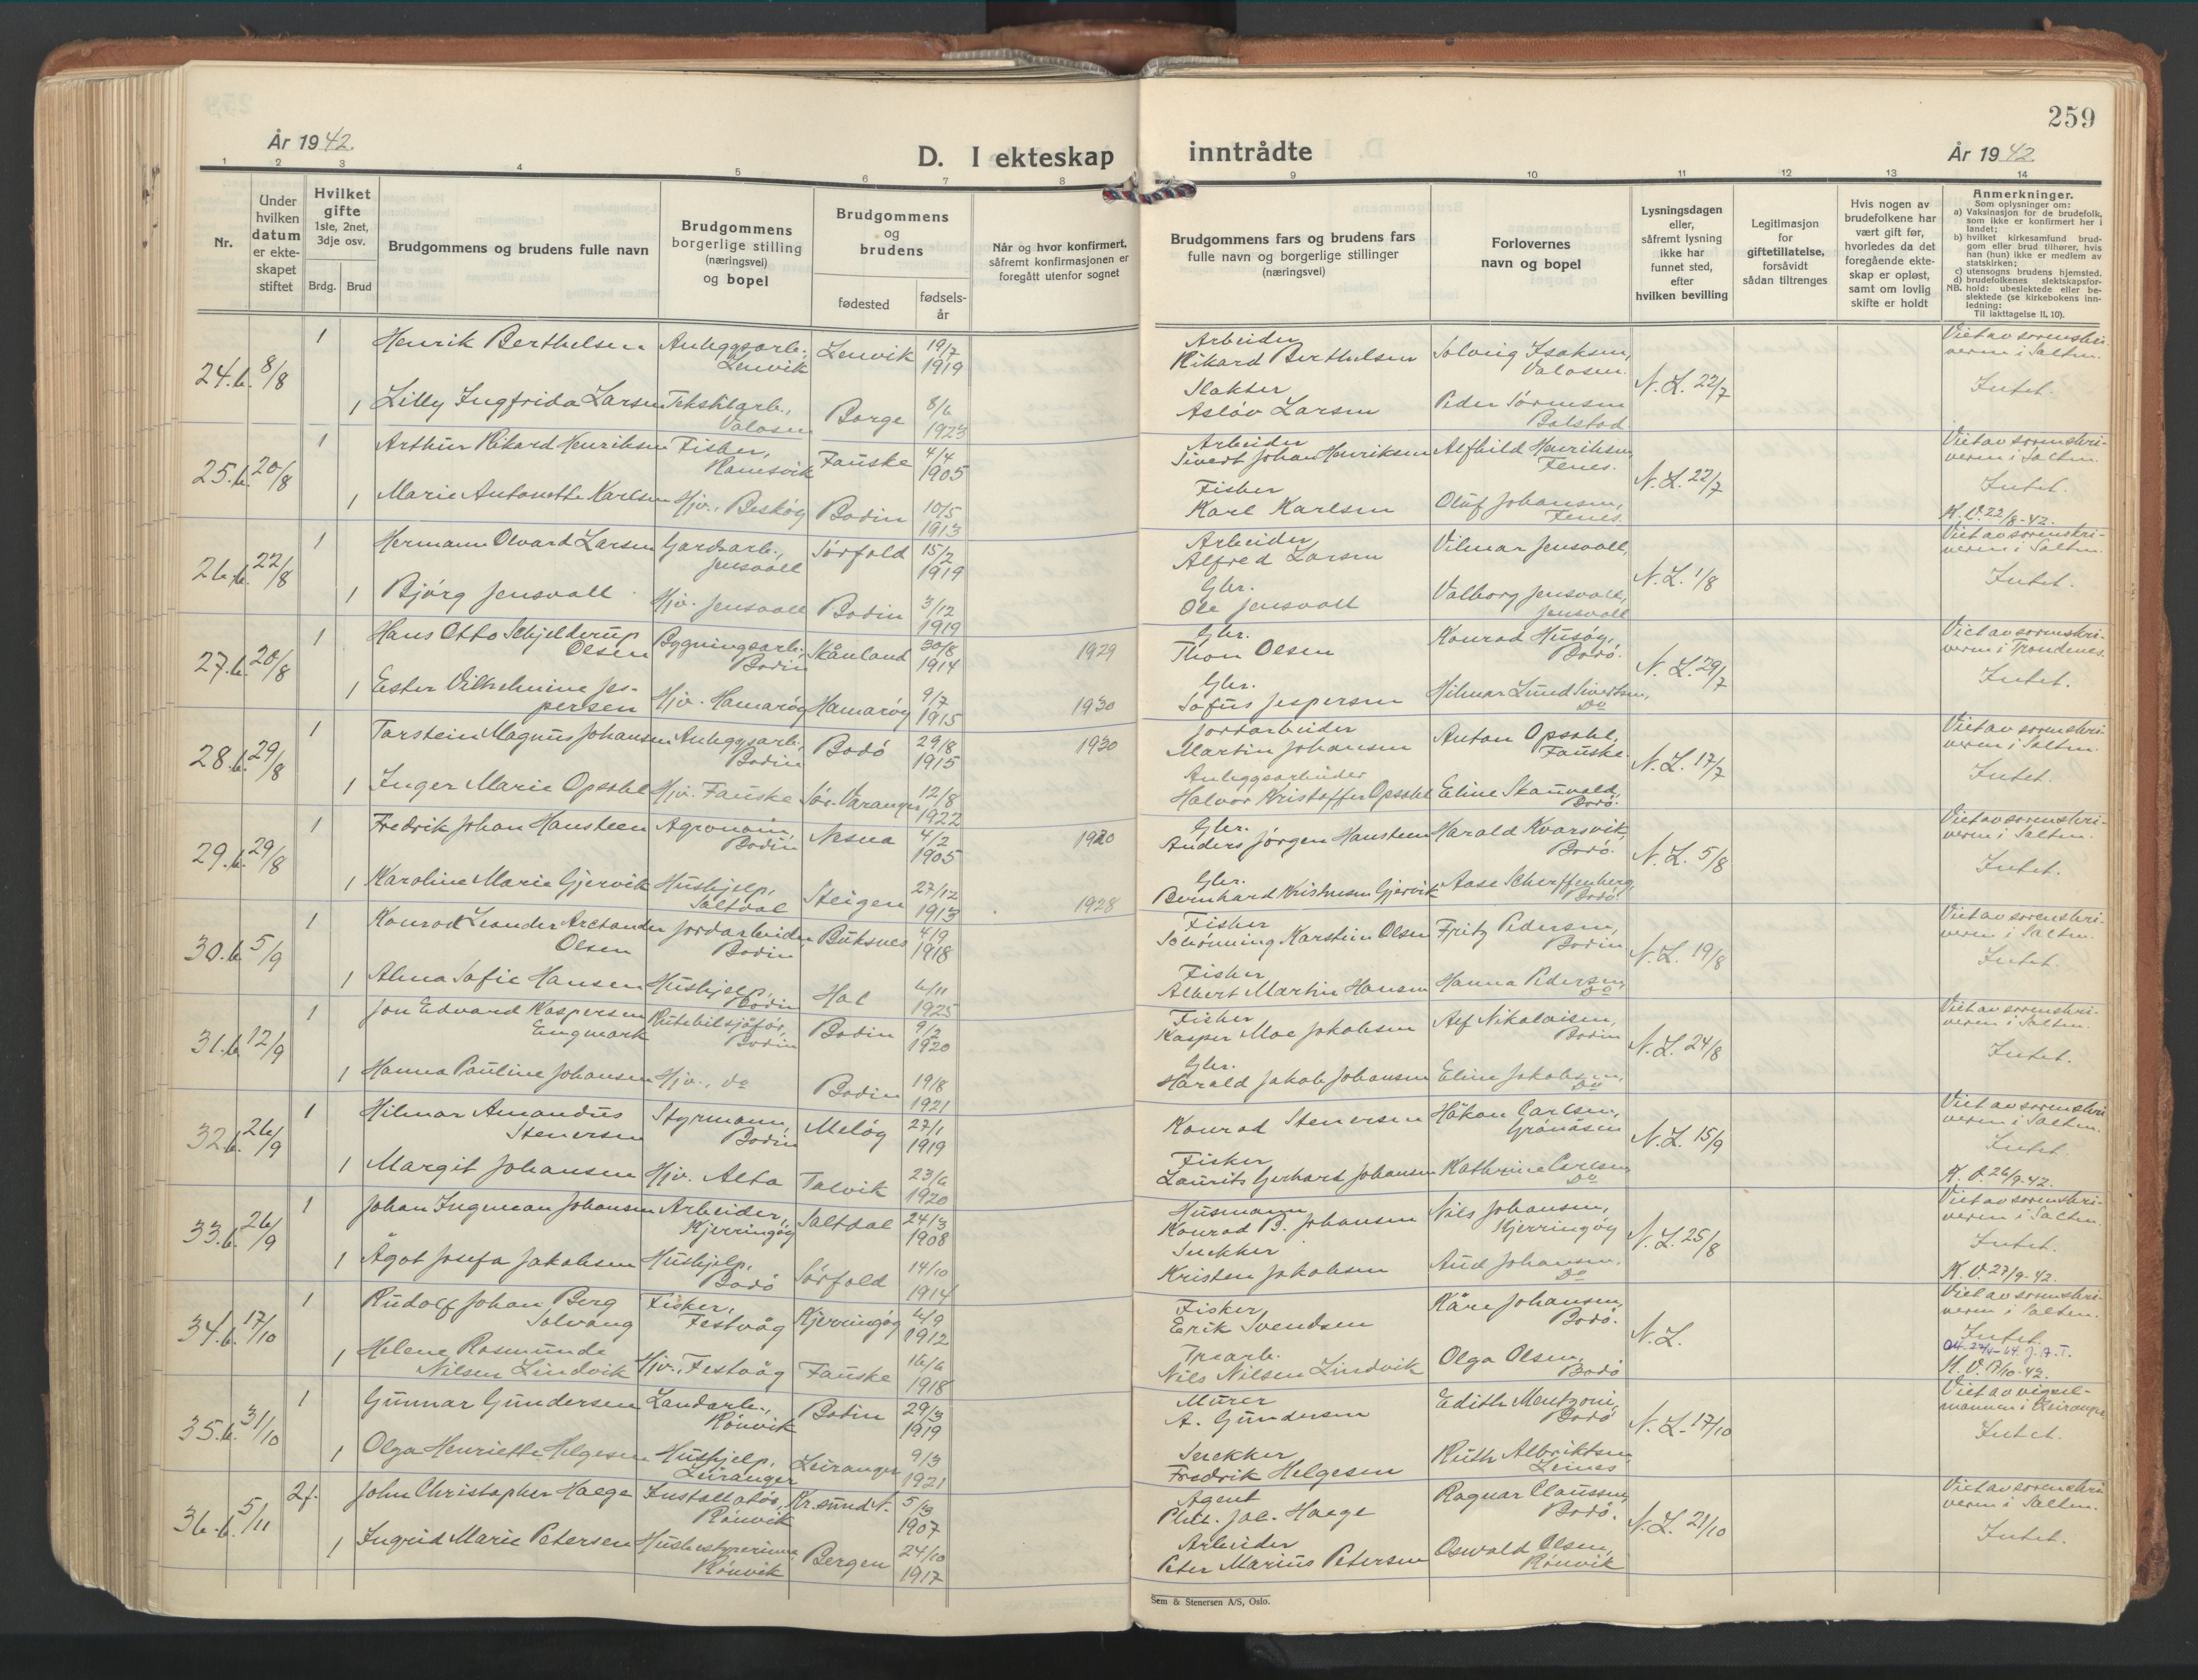 259
År 1942.
D. I ekteskap inntrådte
År 1942
1 2 3 4 5 6 7 8 9 10 11 12 13 14
Nr.
Under hvilken datum er ekteskapet stiftet
Hvilket gifte 1ste, 2net, 3dje osv.
Brdg. Brud
Brudgommens og brudens fulle navn
Brudgommens borgerlige stilling (næringsvei) og bopel
Brudgommens og brudens
fødested
fødselsår
Når og hvor konfirmert, såfremt konfirmasjonen er foregått utenfor sognet
Brudgommens fars og brudens fars fulle navn og borgerlige stillinger (næringsvei)
Forlovernes navn og bopel
Lysningsdagen eller, såfremt lysning ikke har funnet sted, efter hvilken bevilling
Legitimasjon for giftetillatelse, forsåvidt sådan tiltrenges
Hvis nogen av brudefolkene har vært gift før, hvorledes da det foregående ekteskap er opløst, samt om lovlig skifte er holdt
Anmerkninger.
Som oplysninger om:
a) Vaksinasjon for de brudefolk, som ikke er konfirmert her i landet;
b) hvilket kirkesamfund brudgom eller brud tilhører, hvis han (hun) ikke er medlem av statskirken;
c) utensogns brudens hjemsted.
d) brudefolkenes slektskapsforhold: ubeslektede eller beslektede (se kirkebokens innledning:
NB.
Til iakttagelse II, 10).
24.b. 8/8 1 Henrik Berthelsen Anleggsarb., Lenvik Lenvik 19/7 1919 Arbeider Rikard Berthelsen Solveig Isaksen, Valosen. N.L. 22/7 Viet av sorenskriveren i Salten. Intet.
1 Lilly Ingfrida Larsen Tekstilarb., Valosen Borge 8/6 1923 Slakter Asløv Larsen Peder Sørensen Balstad
25.b. 20/8 1 Arthur Rikard Henriksen Fisker, Fauske 4/4 1905 Arbeider Sivert Johan Henriksen Alfhild Henriksen, Fenes. N.L. 22/7 Viet av sorenskriveren i Salten. Intet.
1 Marie Antonette Karlsen Hjv., Beskøy Bodin 10/5 1913 Fisker Karl Karlsen Oluf Johansen, Fenes. K.V. 22/8-42.
26.b. 22/8 1 Hermann Olvard Larsen Gardsarb., Jensvoll Sørfold 15/2 1919 Arbeider Alfred Larsen Vilmar Jensvoll, N.L. 1/8 Viet av sorenskriveren i Salten. Intet.
1 Bjørg Jensvoll Hjv. Jensvoll Bodin 3/12 1919 Gbr. Ole Jensvoll Valborg Jensvoll, Jensvoll
27.b. 20/8 1 Hans Otto Schjelderup Olsen Bygningsarb., Bodin Skånland 30/8 1914 1929 Gbr. Thon Olsen Konrad Husøy, Bodø. N.L. 29/7 Viet av sorenskriveren i Trondenes. Intet.
1 Ester Vilhelmine Jespersen Hjv. Hamarøy Hamarøy 9/7 1915 1930 Gbr. Sofus Jespersen Hilmar Lund Sivertsen, Do
28.b. 29/8 1 Torstein Magnus Johansen Anleggsarb., Bodin Bodø 29/8 1915 1930 Jordarbeider Martin Johansen Anton Opsahl, Fauske. N.L. 17/7 Viet av sorenskriveren i Salten. Intet.
1 Inger Marie Opsahl Hjv. Fauske Sør-Varanger 12/8 1922 Anleggsarbeider Halvor Kristoffer Opsahl Eline Skauvold, Bodø.
29.b. 29/8 1 Fredrik Johan Hansteen Agronom, Bodin Nesna 4/2 1905 1920 Gbr. Anders Jørgen Hansteen Harald Kvarsvik, Bodø. N.L. 5/8 Viet av sorenskriveren i Salten. Intet.
1 Karoline Marie Gjervik Hushjelp, Saltdal Steigen 27/12 1913 1928 Gbr. Bernhard Kristensen Gjervik Aase Scherffenberg, Bodø.
30.b. 5/9 1 Konrad Leander Arctander Olsen Jordarbeider Bodin Buksnes 4/9 1918 Fisker Schønning Karstein Olsen Fritz Pedersen, Bodin N.L. 19/8 Viet av sorenskriveren i Salten. Intet.
1 Alma Sofie Hansen Hushjelp, Bodin Hol 6/11 1925 Fisker Albert Martin Hansen Hanna Pedersen, Do
31.b. 12/9 1 Jon Edvard Kaspersen Engmark Rutebilsjåfør, Bodin Bodin 9/2 1920 Fisker Kasper Moe Jakobsen Alf Nikolaisen, Bodin N.L. 24/8 Viet av sorenskriveren i Salten. Intet.
1 Hanna Pauline Johansen Hjv., do Bodin 19/8 1921 Gbr. Harald Jakob Johansen Eline Jakobsen, Do
32.b. 26/9 1 Hilmar Amandus Stenersen Styrmann, Bodin Meløy 27/1 1919 Konrad Stenersen Håkon Carlsen, Grønåsen N.L. 15/9 Viet av sorenskriveren i Salten. Intet
1 Margit Johansen Hjv. Alta Talvik 23/6 1920 Fisker Laurits Gerhard Johansen Kathrine Carlsen, Do K.V. 26/9-42.
33.b. 26/9 1 Johan Ingmean Johansen Arbeider, Kjerringøy Saltdal 24/3 1908 Husmann Konrad B. Johansen Nils Johansen, Kjerringøy N.L. 25/8 Viet av sorenskriveren i Salten. Intet.
1 Ågot Josefa Jakobsen Hushjelp, Bodø Sørfold 14/10 1914 Snekker Kristen Jakobsen Aud Johansen, Do K.V. 27/9-42.
34.b. 17/10 1 Rudolf Johan Berg Solvang Fisker, Festvåg Kjerringøy 4/9 1912 Fisker Erik Svendsen Kåre Johansen, Bodø. N.L. Viet av sorenskriveren i Salten. Intet.
1 Helene Rosmunde Nilsen Lindvik Hjv., Festvåg Fauske 16/6 1918 Trearb. Nils Nilsen Lindvik Olga Olsen, Bodø K.V. 17/10-42.
35.b. 31/10 1 Gunnar Gundersen Landarb., Rønvik Bodin 29/3 1919 Murer A. Gundersen Edith Mentzoni, Bodø N.L. 17/10 Viet av vigselmannen i Leiranger Intet.
1 Olga Henriette Helgesen Hushjelp, Leiranger Leiranger 9/3 1921 Snekker Fredrik Helgesen Ruth Albriktsen, Leines
36.b. 5/11 2f. John Christopher Haege Installatør, Rønvik Kr.sund N. 5/3 1907 Agent Chr. Jac. Haege Ragnar Claussen, Bodø. N.L. 21/10 Viet av sorenskriveren i Salten. Intet.
1 Ingrid Marie Petersen Husbestyrerinne, Rønvik Bergen 24/10 1917 Arbeider Peter Marius Petersen Oswald Olsen, Rønvik
Sem & Stenersen A/S, Oslo.